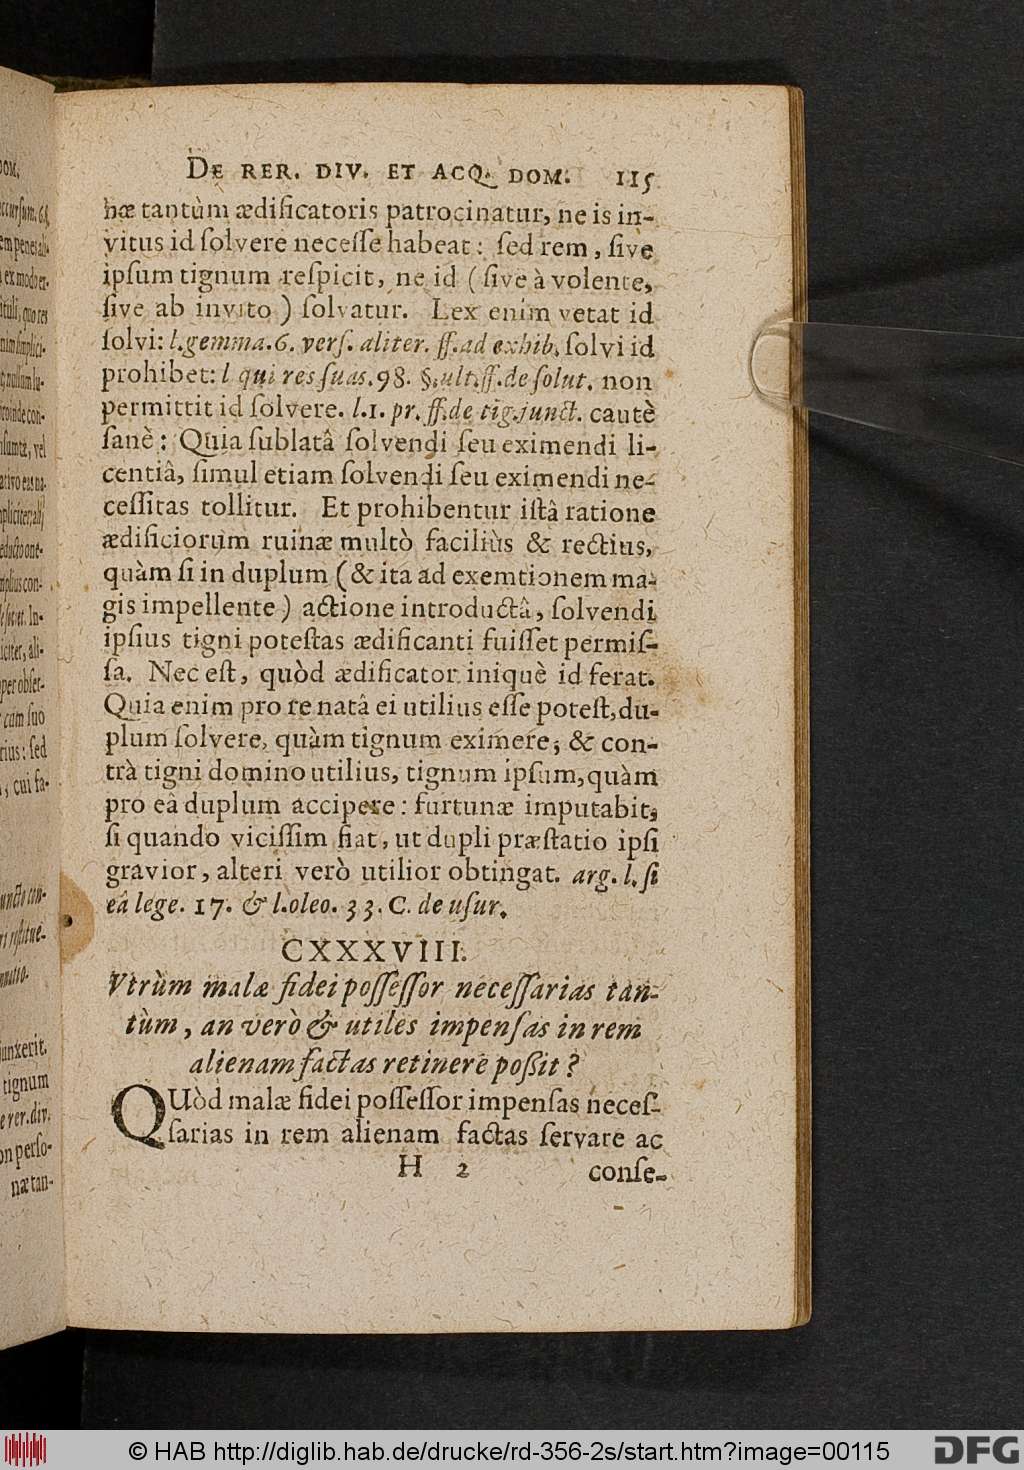 DE RER. DIV. ET ACQ. DOM. 115
næ tantùm ædificatoris patrocinatur, ne is in-
vitus id ſolvere neceſſe habeat: ſed rem, ſive
ipſum tignum reſpicit, ne id (ſive à volente,
ſive ab invito) ſolvatur. Lex enim vetat id
ſolvi: l. gemma. 6. verſ. aliter. ff. ad exhib. ſolvi id
prohibet: l qui res ſuas. 98. §. ult. ff. de ſolut. non
permittit id ſolvere. l. 1. pr. ff. de tig. junct. cautè
ſanè: Quia ſublatâ ſolvendi ſeu eximendi li-
centiâ, ſimul etiam ſolvendi ſeu eximendi ne-
ceſſitas tollitur. Et prohibentur iſtâ ratione
ædificiorum ruinæ multò faciliùs & rectius,
quàm ſi in duplum (& ita ad exemtionem ma-
gis impellente) actione introductâ, ſolvendi
ipſius tigni poteſtas ædificanti fuiſſet permiſ-
ſa. Nec eſt, quòd ædificator iniquè id ferat.
Quia enim pro re natâ ei utilius eſſe poteſt, du-
plum ſolvere, quàm tignum eximere; & con-
trà tigni domino utilius, tignum ipſum, quàm
pro eâ duplum accipere: furtunæ imputabit,
ſi quando viciſſim fiat, ut dupli præſtatio ipſi
gravior, alteri verò utilior obtingat. arg. l. ſi
eâ lege. 17. & l. oleo. 33. C. de uſur.
CXXXVIII.
Vtrùm malæ fidei poſſeſſor neceſſarias tan-
tùm, an verò & utiles impenſas in rem
alienam factas retinere poßit?
QUòd malæ fidei poſſeſſor impenſas neceſ-
ſarias in rem alienam factas ſervare ac
H 2 conſe-
© HAB http://diglib.hab.de/drucke/rd-356-2s/start.htm?image=00115
DFG